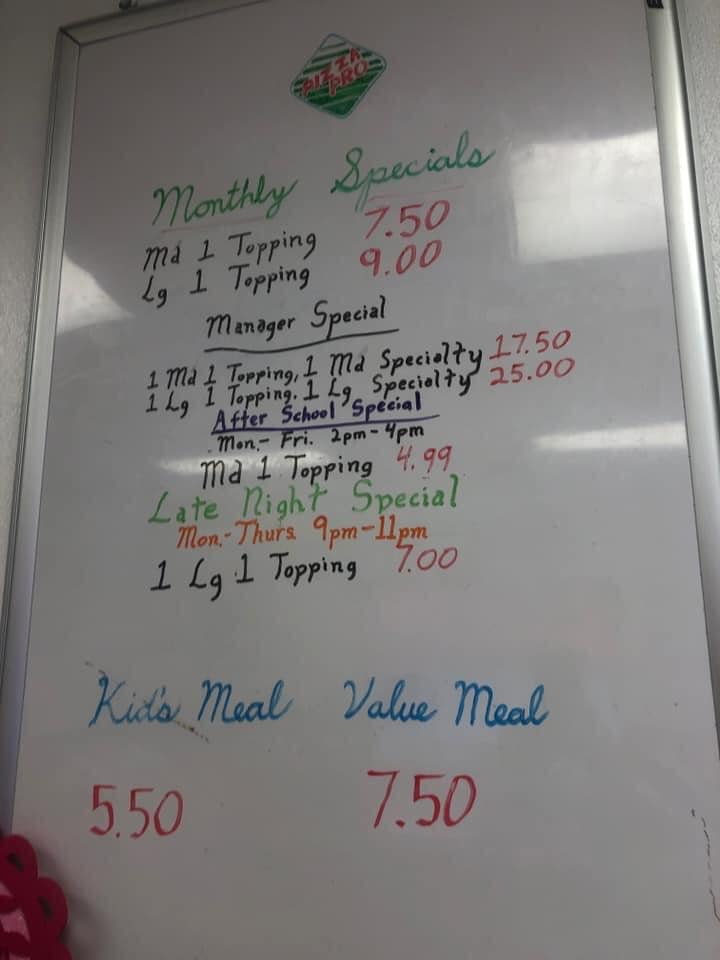 PIZZA
PRO
Monthly Specials
Md 1 Topping 7.50
Lg 1 Topping 9.00
Manager Special
1 Md 1 Topping, 1 Md Specialty 17.50
1 Lg 1 Topping. 1 Lg Specialty 25.00
After School Special
Mon,- Fri. 2pm-4pm
Md 1 Topping 4.99
Late Night Special
Mon.-Thurs 9pm-11pm
1 Lg 1 Topping 7.00
Kid's Meal Value Meal
5.50 7.50